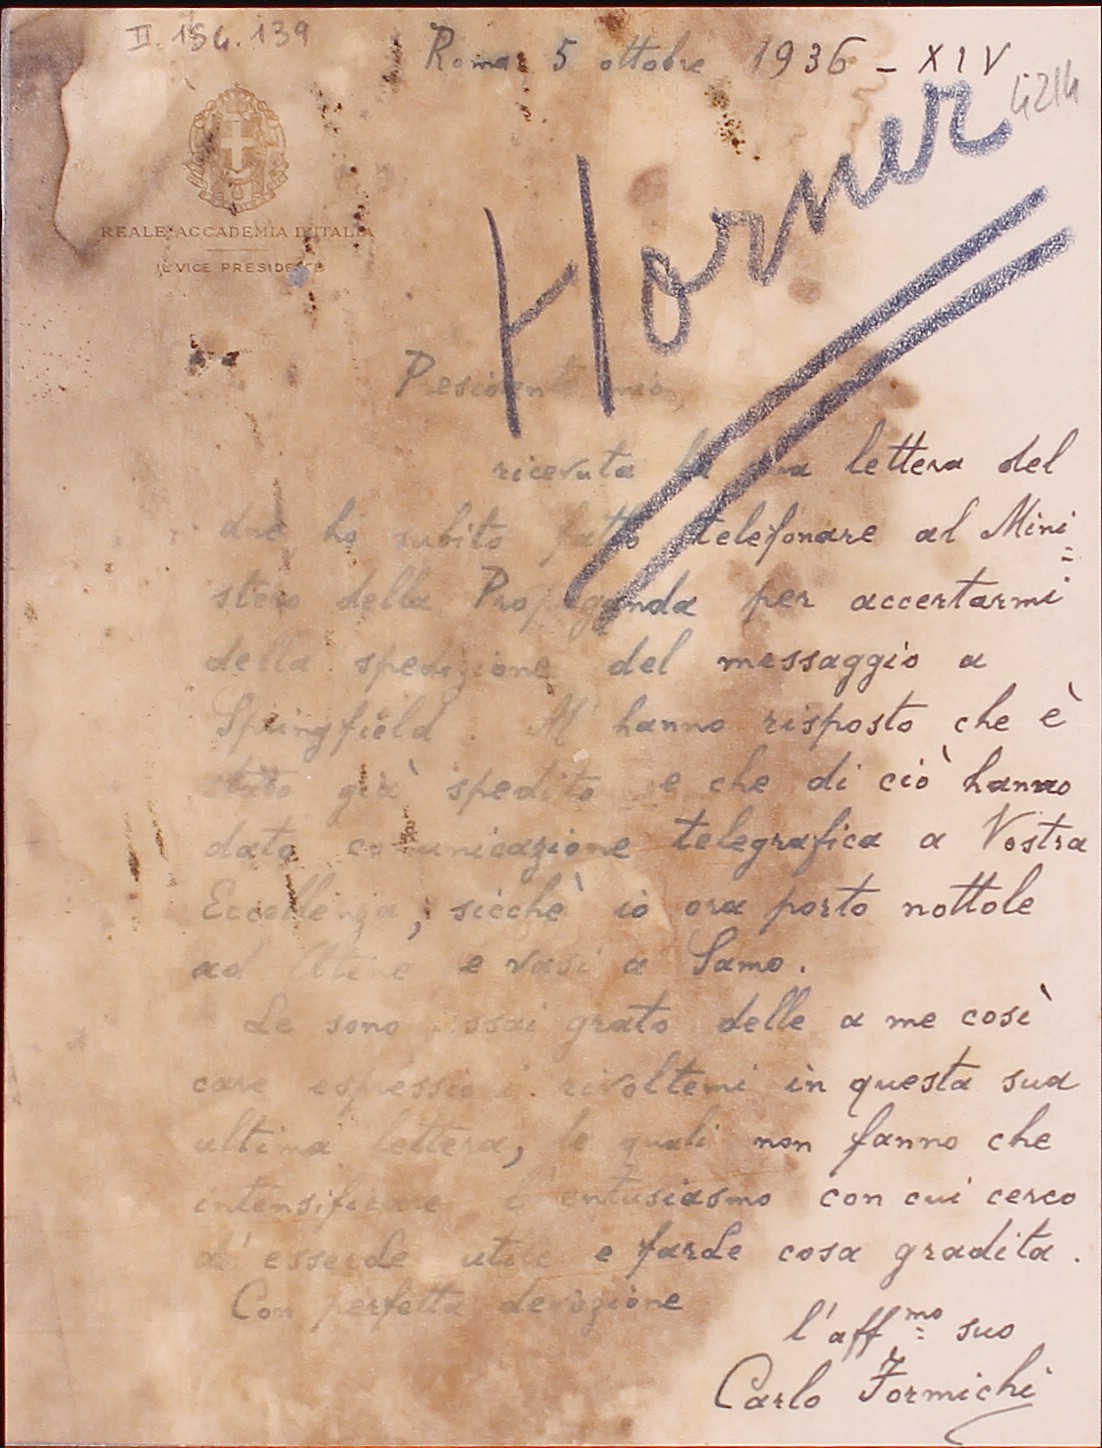 II. 154. 139
Roma 5 ottobre 1936 - XIV
4214
Horner
REALE ACCADEMIA D'ITALIA
IL VICE PRESIDENTE
Presidente mio,
ricevuta la sua lettera del
due ho subito fatto telefonare al Mini=
stero della Propaganda per accertarmi
della spedizione del messaggio a
Springfield. M'hanno risposto che è
stato già spedito e che di ciò hanno
data comunicazione telegrafica a Vostra
Eccellenza, sicchè io ora porto nottole
ad Atene e vasi a Samo.
Le sono assai grato delle a me così
care espressioni rivoltemi in questa sua
ultima lettera, le quali non fanno che
intensificare l'entusiasmo con cui cerco
d'esserLe utile e farLe cosa gradita.
Con perfetta devozione
l'aff.mo suo
Carlo Formichi